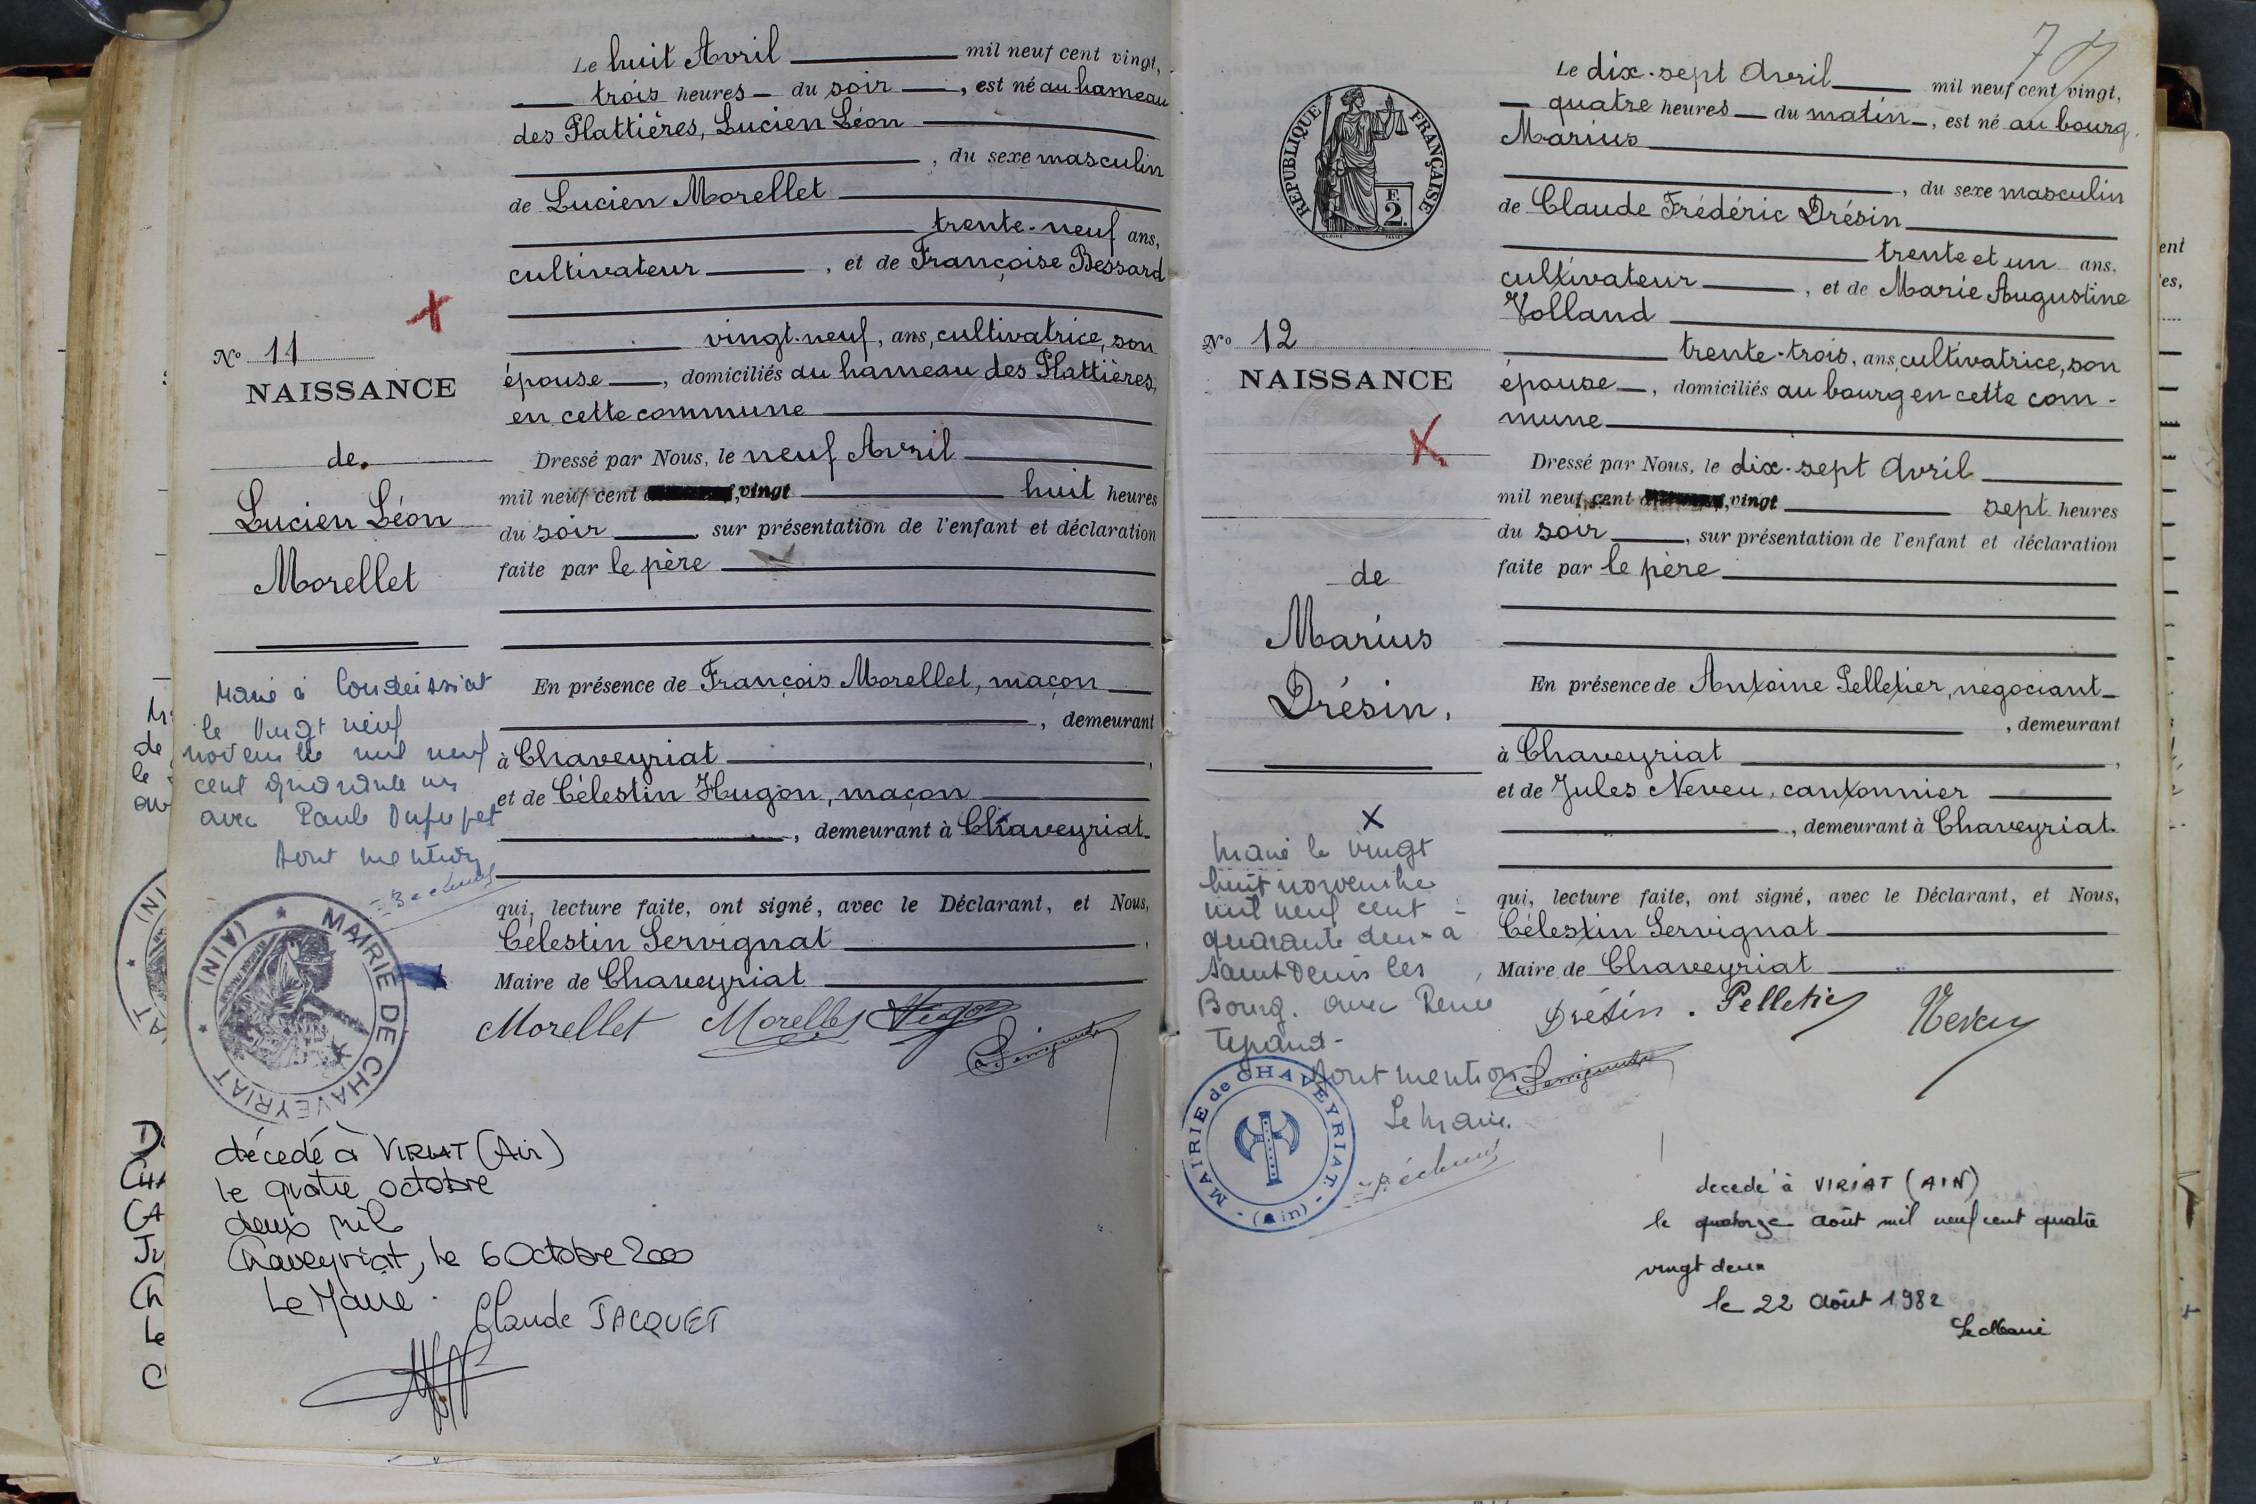 Le huit Avril mil neuf cent vingt,
trois heures du soir, est né au hameau
des Plattières, Lucien Léon
, du sexe masculin
de Lucien Morellet
trente-neuf ans,
cultivateur, et de Françoise Bessard
vingt-neuf, ans, cultivatrice, son
épouse, domiciliés au hameau des Plattières,
en cette commune
Dressé par Nous, le neuf Avril
mil neuf cent vingt huit heures
du soir, sur présentation de l'enfant et déclaration
faite par le père
En présence de François Morellet, maçon
, demeurant
à Chaveyriat,
et de Célestin Hugon, maçon
, demeurant à Chaveyriat
qui, lecture faite, ont signé, avec le Déclarant, et Nous,
Célestin Servignat,
Maire de Chaveyriat
Morellet Morellet Hugon
C. Servignat
No 11
NAISSANCE
de
Lucien Léon
Morellet
Marié à Condeissiat
le vingt neuf
novembre mil neuf
cent quarante un
avec Paule
dont mention
MAIRIE DE CHAVEYRIAT
(AIN)
décedé à VIRIAT (Ain)
le quatre octobre
deux mil
Chaveyriat, le 6 Octobre 2000
Le Maire.
Claude JACQUET
Le dix-sept Avril mil neuf cent vingt,
quatre heures du matin, est né au bourg
Marius
, du sexe masculin
de Claude Frédéric Drésin
trente et un ans,
cultivateur, et de Marie Augustine
Volland
trente-trois, ans, cultivatrice, son
épouse, domiciliés au bourg en cette com-
mune
Dressé par Nous, le dix-sept Avril
mil neuf cent vingt sept heures
du soir, sur présentation de l'enfant et déclaration
faite par le père
En présence de Antoine Pelletier, négociant
, demeurant
à Chaveyriat,
et de Jules Neveu, cantonnier
, demeurant à Chaveyriat
qui, lecture faite, ont signé, avec le Déclarant, et Nous,
Célestin Servignat
Maire de Chaveyriat
Drésin. Pelletier Neveu
C. Servignat
RÉPUBLIQUE FRANÇAISE
F.
2.
No 12
NAISSANCE
de
Marius
Drésin,
Marié le vingt
huit novembre
mil neuf cent
quarante deux à
Saint Denis les
Bourg. avec Renée
dont mention
Le Maire.
MAIRIE de CHAVEYRIAT
(Ain)
decedé à VIRIAT (AIN)
le quatorze Août mil neuf cent quatre
vingt deux
le 22 Août 1982
Le Maire